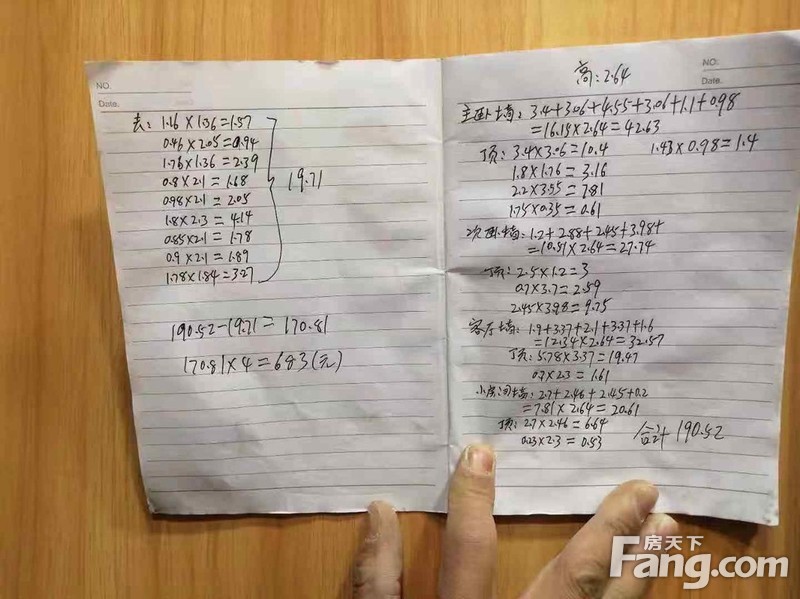 NO.
Date.
去：1.16×1.36=1.57
0.46×2.05=0.94
1.76×1.36=2.39
0.8×2.1=1.68
0.98×2.1=2.05
1.8×2.3=4.14
0.85×2.1=1.78
0.9×2.1=1.89
1.78×1.84=3.27
19.71
190.52-19.71=170.81
170.81×4=683(元)
NO.
Date.
高：2.64
主卧墙：3.4+3.06+4.55+3.06+1.1+0.98
=16.15×2.64=42.63
顶：3.4×3.06=10.4 1.43×0.98=1.4
1.8×1.76=3.16
2.2×3.55=7.81
1.75×0.35=0.61
次卧墙：1.2+2.88+2.45+3.98+
=10.51×2.64=27.74
顶：2.5×1.2=3
0.7×3.7=2.59
2.45×3.98=9.75
客厅墙：1.9+3.37+2.1+3.37+1.6
=12.34×2.64=32.57
顶：5.78×3.37=19.47
0.7×2.3=1.61
小房间墙：2.7+2.46+2.45+0.2
=7.81×2.64=20.61
顶：2.7×2.46=6.64
0.23×2.3=0.53
合计190.52
房天下
Fang.com